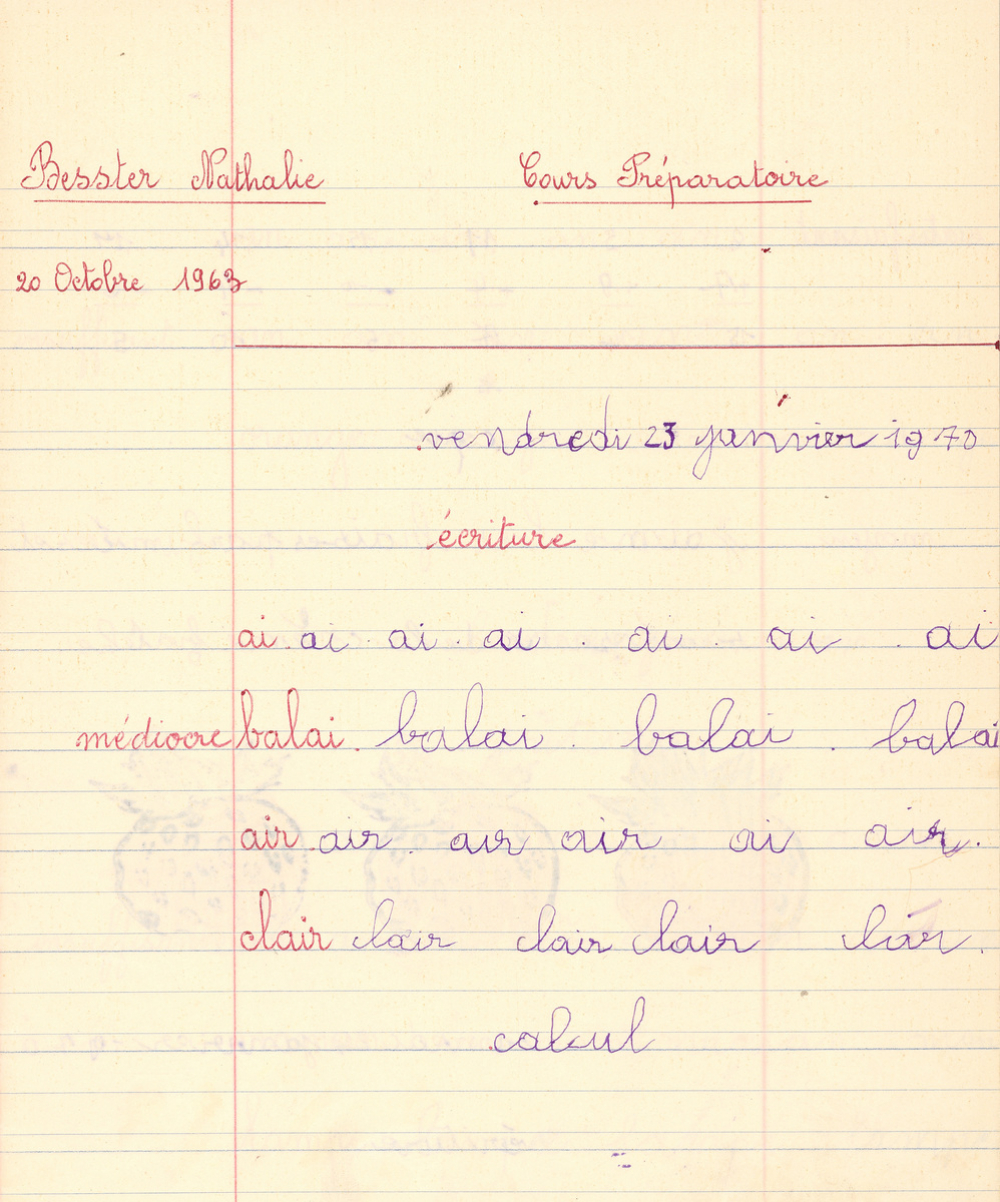 Besster Nathalie Cours Préparatoire
20 Octobre 1963
vendredi 23 janvier 1970
écriture
ai. ai. ai. ai. ai. ai. ai
médiocre balai. balai. balai. balai
air. air. air air ai air.
clair clair clair clair clair.
calcul